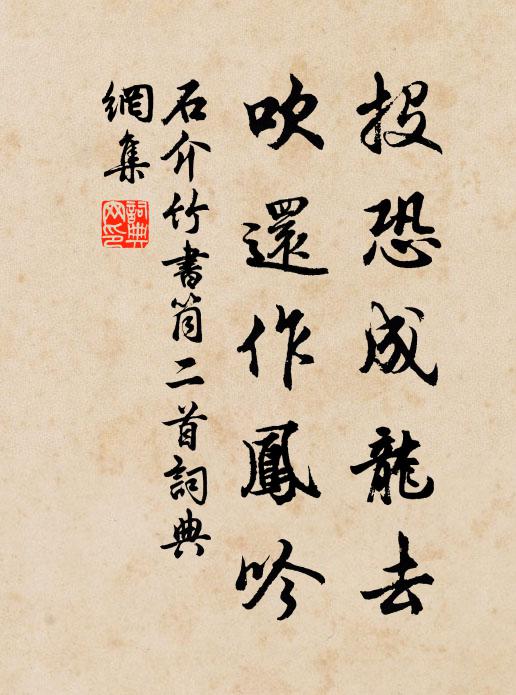 投恐成龍去
吹還作鳳吟
石介竹書筒二首詞典
網集
詞典
网印